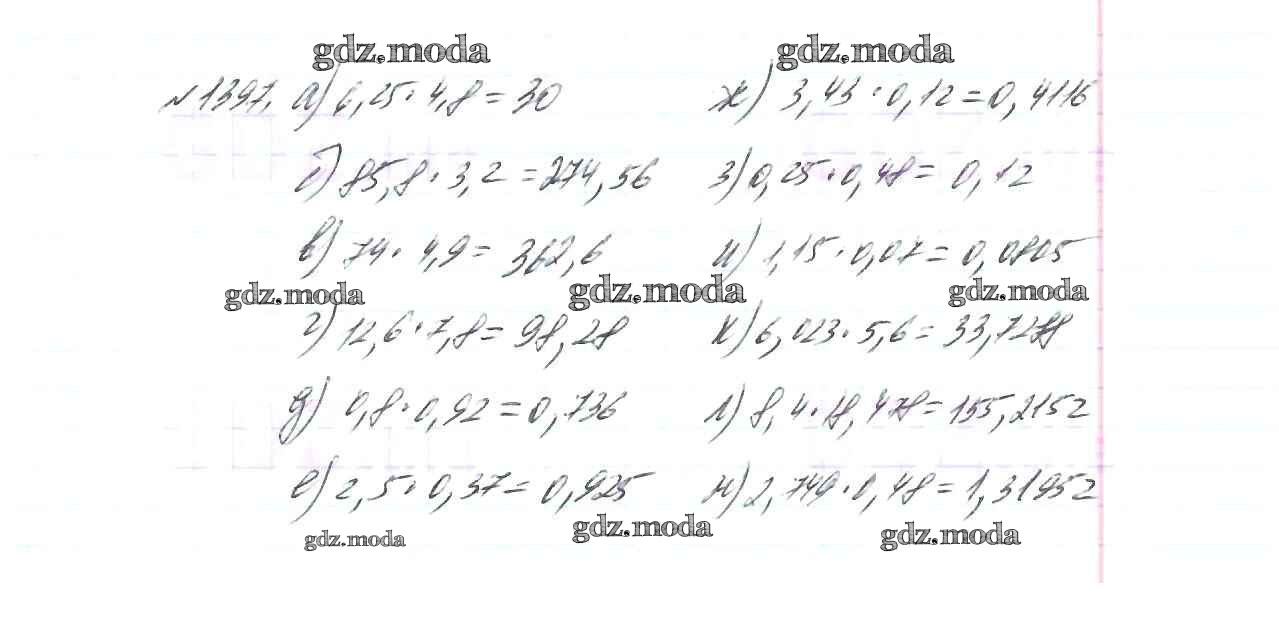 gdz.moda gdz.moda
№1397. а) 6,25·4,8=30 ж) 3,43·0,12=0,4116
б) 85,8·3,2=274,56 з) 0,25·0,48=0,12
в) 74·4,9=362,6 и) 1,15·0,07=0,0805
gdz.moda gdz.moda gdz.moda
г) 12,6·7,8=98,28 к) 6,023·5,6=33,7288
д) 0,8·0,92=0,736 л) 8,4·18,478=155,2152
е) 2,5·0,37=0,925 м) 2,749·0,48=1,31952
gdz.moda gdz.moda gdz.moda